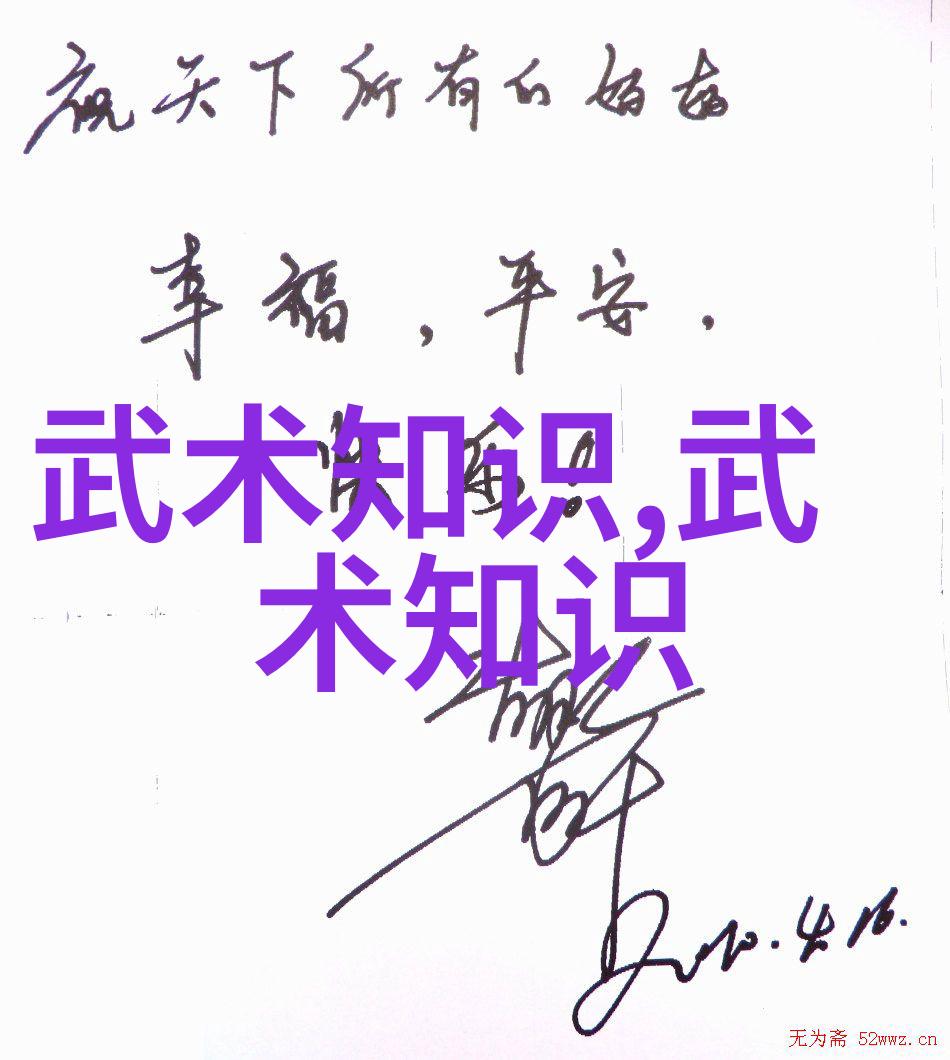 祝天下所有的妈妈
幸福，平安，
快乐！
武术知识,武
术知识
2010.4.16.
无为斋 52wwz.cn